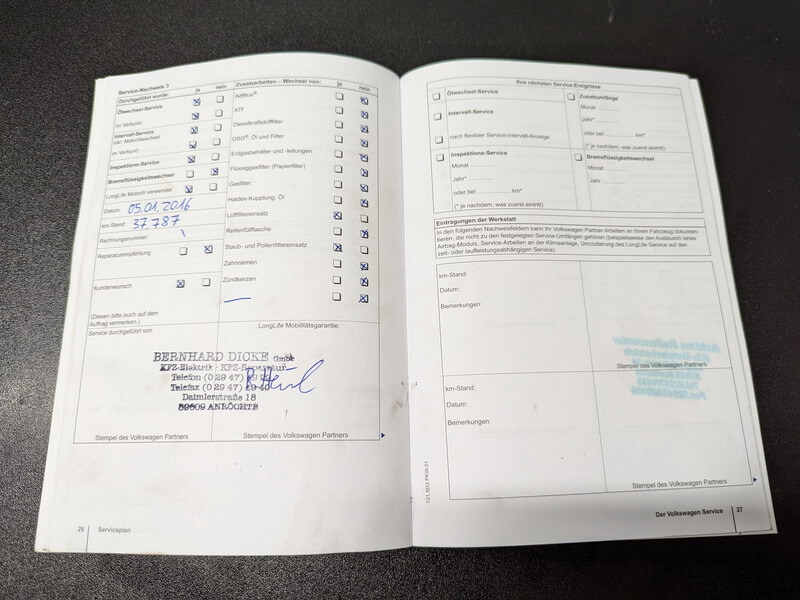 Service-Nachweis 3
Durchgeführt wurde: ja nein
Ölwechsel-Service
im Verbund
Intervall-Service
inkl. Motorölwechsel
im Verbund
Inspektions-Service
Bremsflüssigkeitswechsel
LongLife Motoröl verwendet
Datum: 05.01.2016
km-Stand: 37.787
Rechnungsnummer: \
Reparaturempfehlung
Kundenwunsch
(Diesen bitte auch auf dem
Auftrag vermerken.)
Zusatzarbeiten – Wechsel von: ja nein
AdBlue®
ATF
Dieselkraftstofffilter
DSG®: Öl und Filter
Erdgasbehälter und -leitungen
Flüssiggasfilter (Papierfilter)
Gasfilter
Haldex-Kupplung: Öl
Luftfiltereinsatz
Reifenfüllflasche
Staub- und Pollenfiltereinsatz
Zahnriemen
Zündkerzen
Service durchgeführt von:
LongLife Mobilitätsgarantie:
BERNHARD DICKE GmbH
KFZ-Elektrik · KFZ-Reparatur
Telefon (0 29 47)
Telefax (0 29 47)
Daimlerstraße 18
59609 ANRÖCHTE
Stempel des Volkswagen Partners
Stempel des Volkswagen Partners
26 Serviceplan
Ihre nächsten Service-Ereignisse
Ölwechsel-Service
Intervall-Service
nach flexibler Service-Intervall-Anzeige
Inspektions-Service
Monat
Jahr*
oder bei km*
(* je nachdem, was zuerst eintritt)
Zusatzumfänge
Monat
Jahr*
oder bei km*
(* je nachdem, was zuerst eintritt)
Bremsflüssigkeitswechsel
Monat
Jahr
Eintragungen der Werkstatt
In den folgenden Nachweisfeldern kann Ihr Volkswagen Partner Arbeiten an Ihrem Fahrzeug dokumen-
tieren, die nicht zu den festgelegten Service-Umfängen gehören (beispielsweise den Austausch eines
Airbag-Moduls, Service-Arbeiten an der Klimaanlage, Umcodierung des LongLife Service auf den
zeit- oder laufleistungsabhängigen Service).
km-Stand:
Datum:
Bemerkungen:
Stempel des Volkswagen Partners
km-Stand:
Datum:
Bemerkungen:
Stempel des Volkswagen Partners
121.5D3.PKW.01
Der Volkswagen Service 27